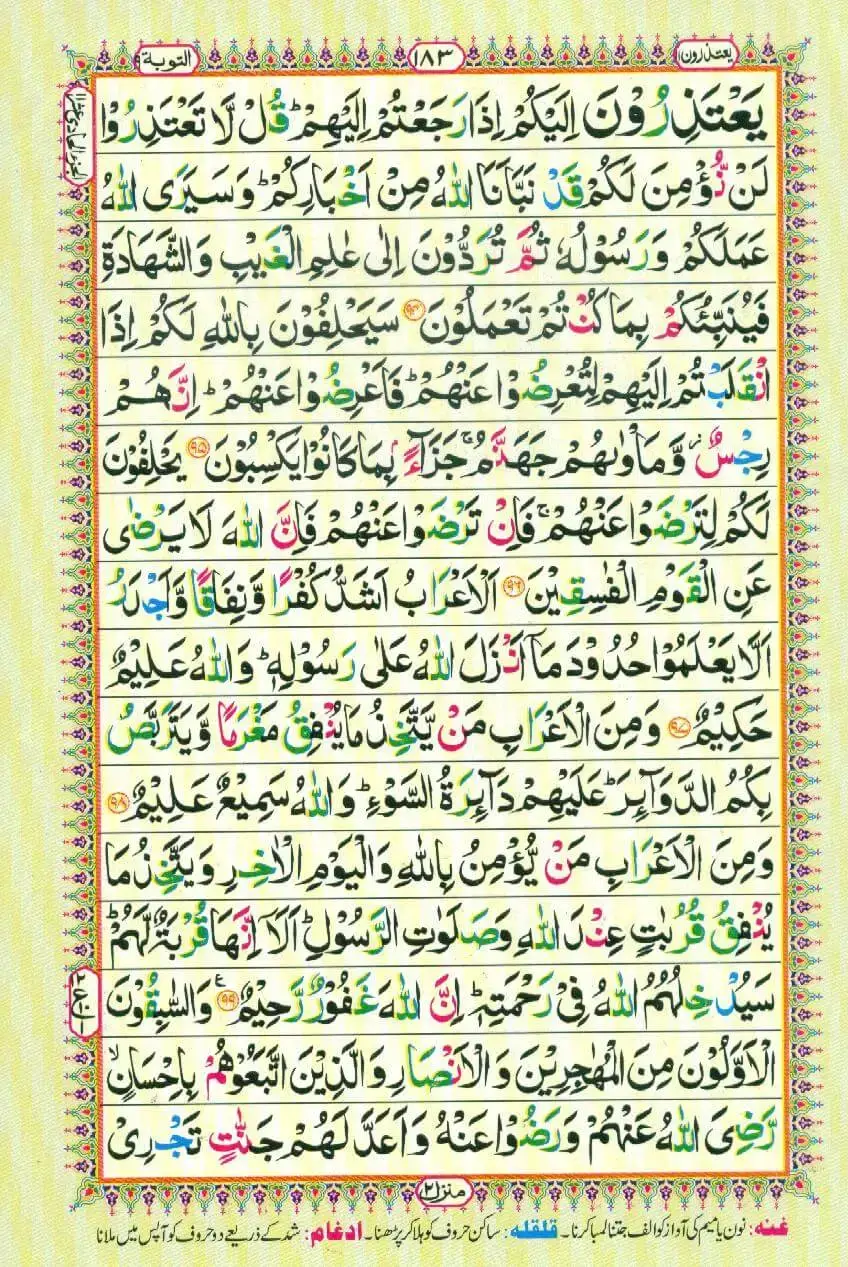 یعتذرون ۱۱
۱۸۳
التوبة ۹
الجزء الحادی عشر
يَعْتَذِرُوْنَ اِلَيْكُمْ اِذَا رَجَعْتُمْ اِلَيْهِمْ ؕ قُلْ لَّا تَعْتَذِرُوْا
لَنْ نُّؤْمِنَ لَكُمْ قَدْ نَبَّاَنَا اللّٰهُ مِنْ اَخْبَارِكُمْ ؕ وَسَيَرَى اللّٰهُ
عَمَلَكُمْ وَرَسُوْلُهٗ ثُمَّ تُرَدُّوْنَ اِلٰى عٰلِمِ الْغَيْبِ وَالشَّهَادَةِ
فَيُنَبِّئُكُمْ بِمَا كُنْتُمْ تَعْمَلُوْنَ ﴿۹۴﴾ سَيَحْلِفُوْنَ بِاللّٰهِ لَكُمْ اِذَا
انْقَلَبْتُمْ اِلَيْهِمْ لِتُعْرِضُوْا عَنْهُمْ ؕ فَاَعْرِضُوْا عَنْهُمْ ؕ اِنَّهُمْ
رِجْسٌ ۫ وَّمَاْوٰىهُمْ جَهَنَّمُ ۚ جَزَآءًۢ بِمَا كَانُوْا يَكْسِبُوْنَ ﴿۹۵﴾ يَحْلِفُوْنَ
لَكُمْ لِتَرْضَوْا عَنْهُمْ ۚ فَاِنْ تَرْضَوْا عَنْهُمْ فَاِنَّ اللّٰهَ لَا يَرْضٰى
عَنِ الْقَوْمِ الْفٰسِقِيْنَ ﴿۹۶﴾ اَلْاَعْرَابُ اَشَدُّ كُفْرًا وَّنِفَاقًا وَّاَجْدَرُ
اَلَّا يَعْلَمُوْا حُدُوْدَ مَاۤ اَنْزَلَ اللّٰهُ عَلٰى رَسُوْلِهٖ ؕ وَاللّٰهُ عَلِيْمٌ
حَكِيْمٌ ﴿۹۷﴾ وَمِنَ الْاَعْرَابِ مَنْ يَّتَّخِذُ مَا يُنْفِقُ مَغْرَمًا وَّيَتَرَبَّصُ
بِكُمُ الدَّوَآئِرَ ؕ عَلَيْهِمْ دَآئِرَةُ السَّوْءِ ؕ وَاللّٰهُ سَمِيْعٌ عَلِيْمٌ ﴿۹۸﴾
وَمِنَ الْاَعْرَابِ مَنْ يُّؤْمِنُ بِاللّٰهِ وَالْيَوْمِ الْاٰخِرِ وَيَتَّخِذُ مَا
يُنْفِقُ قُرُبٰتٍ عِنْدَ اللّٰهِ وَصَلَوٰتِ الرَّسُوْلِ ؕ اَلَاۤ اِنَّهَا قُرْبَةٌ لَّهُمْ ؕ
سَيُدْخِلُهُمُ اللّٰهُ فِيْ رَحْمَتِهٖ ؕ اِنَّ اللّٰهَ غَفُوْرٌ رَّحِيْمٌ ﴿۹۹﴾ ع وَالسّٰبِقُوْنَ
الْاَوَّلُوْنَ مِنَ الْمُهٰجِرِيْنَ وَالْاَنْصَارِ وَالَّذِيْنَ اتَّبَعُوْهُمْ بِاِحْسَانٍ ۙ
رَّضِيَ اللّٰهُ عَنْهُمْ وَرَضُوْا عَنْهُ وَاَعَدَّ لَهُمْ جَنّٰتٍ تَجْرِيْ
منزل ۲
غنه: نون یا میم کی آواز کو الف جتنا لمبا کرنا۔ قلقله: ساکن حروف کو ہلا کر پڑھنا۔ ادغام: شد کے ذریعے دو حروف کو آپس میں ملانا